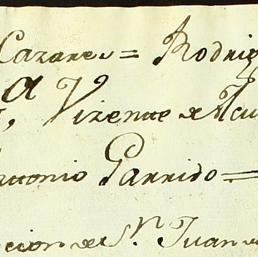 Cazares = Rodrig
a, Vizente de Acu
Antonio Garrido =
cion de Sn. Juan de